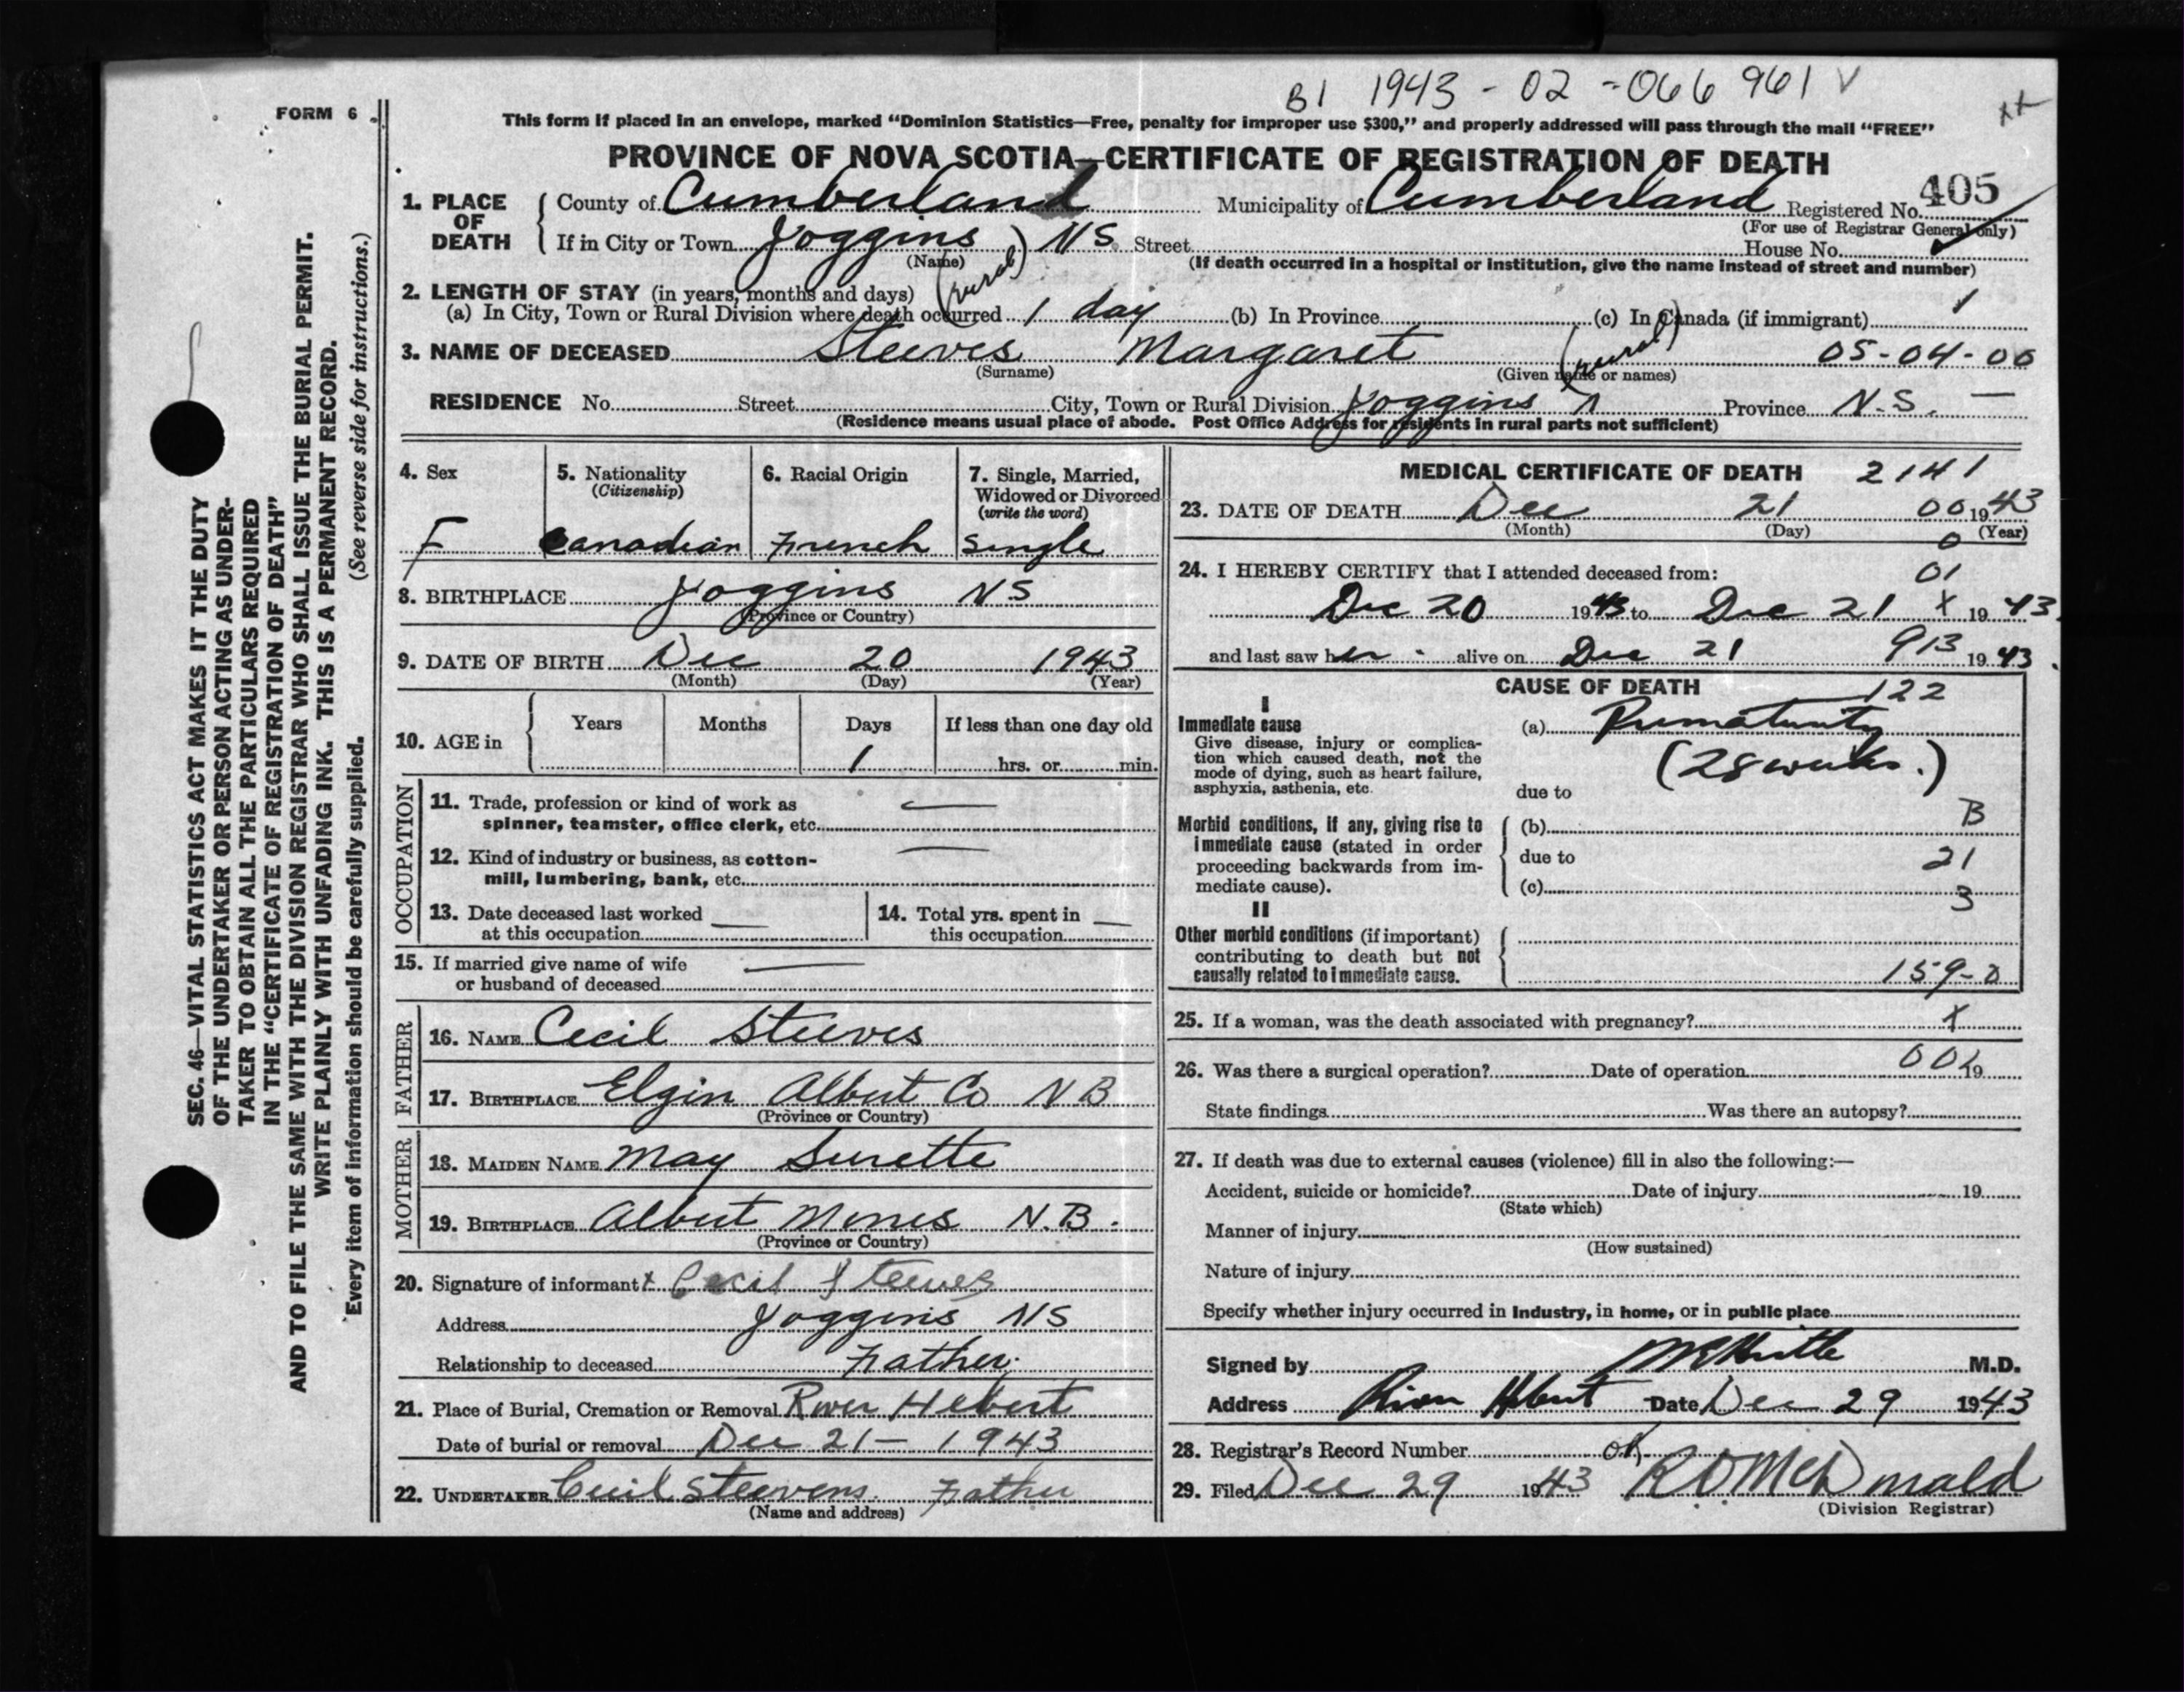 B1 1943-02-066961 V
FORM 6
This form if placed in an envelope, marked “Dominion Statistics—Free, penalty for improper use $300,” and properly addressed will pass through the mail “FREE”
PROVINCE OF NOVA SCOTIA—CERTIFICATE OF REGISTRATION OF DEATH
405
1. PLACE OF DEATH
County of Cumberland Municipality of Cumberland Registered No.
(For use of Registrar General only)
If in City or Town Joggins (rural) NS. Street House No.
(Name) (If death occurred in a hospital or institution, give the name instead of street and number)
2. LENGTH OF STAY (in years, months and days)
(a) In City, Town or Rural Division where death occurred 1 day (b) In Province (c) In Canada (if immigrant)
3. NAME OF DECEASED Steeves Margaret 05-04-00
(Surname) (Given name or names)
RESIDENCE No. Street City, Town or Rural Division Joggins (rural) Province N.S. —
(Residence means usual place of abode. Post Office Address for residents in rural parts not sufficient)
4. Sex
F
5. Nationality
(Citizenship)
Canadian
6. Racial Origin
French
7. Single, Married,
Widowed or Divorced
(write the word)
Single
8. BIRTHPLACE Joggins NS
(Province or Country)
9. DATE OF BIRTH Dec 20 1943
(Month) (Day) (Year)
10. AGE in Years Months Days If less than one day old
1 hrs. or min.
OCCUPATION
11. Trade, profession or kind of work as —
spinner, teamster, office clerk, etc.
12. Kind of industry or business, as cotton- —
mill, lumbering, bank, etc.
13. Date deceased last worked —
at this occupation
14. Total yrs. spent in —
this occupation
15. If married give name of wife —
or husband of deceased
FATHER
16. NAME Cecil Steeves
17. BIRTHPLACE Elgin Albert Co NB
(Province or Country)
MOTHER
18. MAIDEN NAME May Surette
19. BIRTHPLACE Albert Mines N.B.
(Province or Country)
20. Signature of informant x Cecil Steeves
Address Joggins NS
Relationship to deceased Father.
21. Place of Burial, Cremation or Removal River Hebert
Date of burial or removal Dec 21- 1943
22. UNDERTAKER Cecil Steevens. Father
(Name and address)
MEDICAL CERTIFICATE OF DEATH 2141
23. DATE OF DEATH Dec 21 00 1943
(Month) (Day) (Year)
0
24. I HEREBY CERTIFY that I attended deceased from: 01
Dec 20 1943 to Dec 21 X 1943.
and last saw her alive on Dec 21 913 1943.
CAUSE OF DEATH 122
I
Immediate cause
Give disease, injury or complica-
tion which caused death, not the
mode of dying, such as heart failure,
asphyxia, asthenia, etc.
(a) Prematurity
(28 weeks.)
due to
Morbid conditions, if any, giving rise to
immediate cause (stated in order
proceeding backwards from im-
mediate cause).
(b) B
due to 21
(c) 3
II
Other morbid conditions (if important)
contributing to death but not
causally related to immediate cause.
159-0
25. If a woman, was the death associated with pregnancy? X
26. Was there a surgical operation? Date of operation 19
State findings Was there an autopsy?
27. If death was due to external causes (violence) fill in also the following:—
Accident, suicide or homicide? Date of injury 19
(State which)
Manner of injury
(How sustained)
Nature of injury
Specify whether injury occurred in industry, in home, or in public place
Signed by M.D.
Address River Hebert Date Dec 29 1943
28. Registrar's Record Number
29. Filed Dec 29 1943 R D McDonald
(Division Registrar)
SEC. 46—VITAL STATISTICS ACT MAKES IT THE DUTY
OF THE UNDERTAKER OR PERSON ACTING AS UNDER-
TAKER TO OBTAIN ALL THE PARTICULARS REQUIRED
IN THE “CERTIFICATE OF REGISTRATION OF DEATH”
AND TO FILE THE SAME WITH THE DIVISION REGISTRAR WHO SHALL ISSUE THE BURIAL PERMIT.
WRITE PLAINLY WITH UNFADING INK. THIS IS A PERMANENT RECORD.
Every item of information should be carefully supplied. (See reverse side for instructions.)